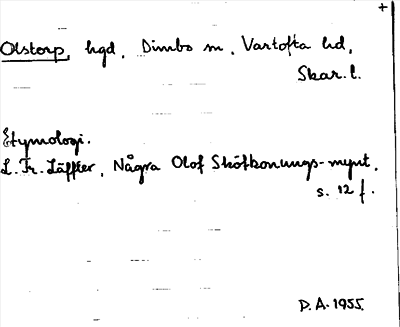 +
Olstorp, hgd, Dimbo sn, Vartofta hd,
Skar. l.
Etymologi.
L. Fr. Läffler, Några Olof Skötkonungs-mynt,
s. 12 f.
D.A. 1955.